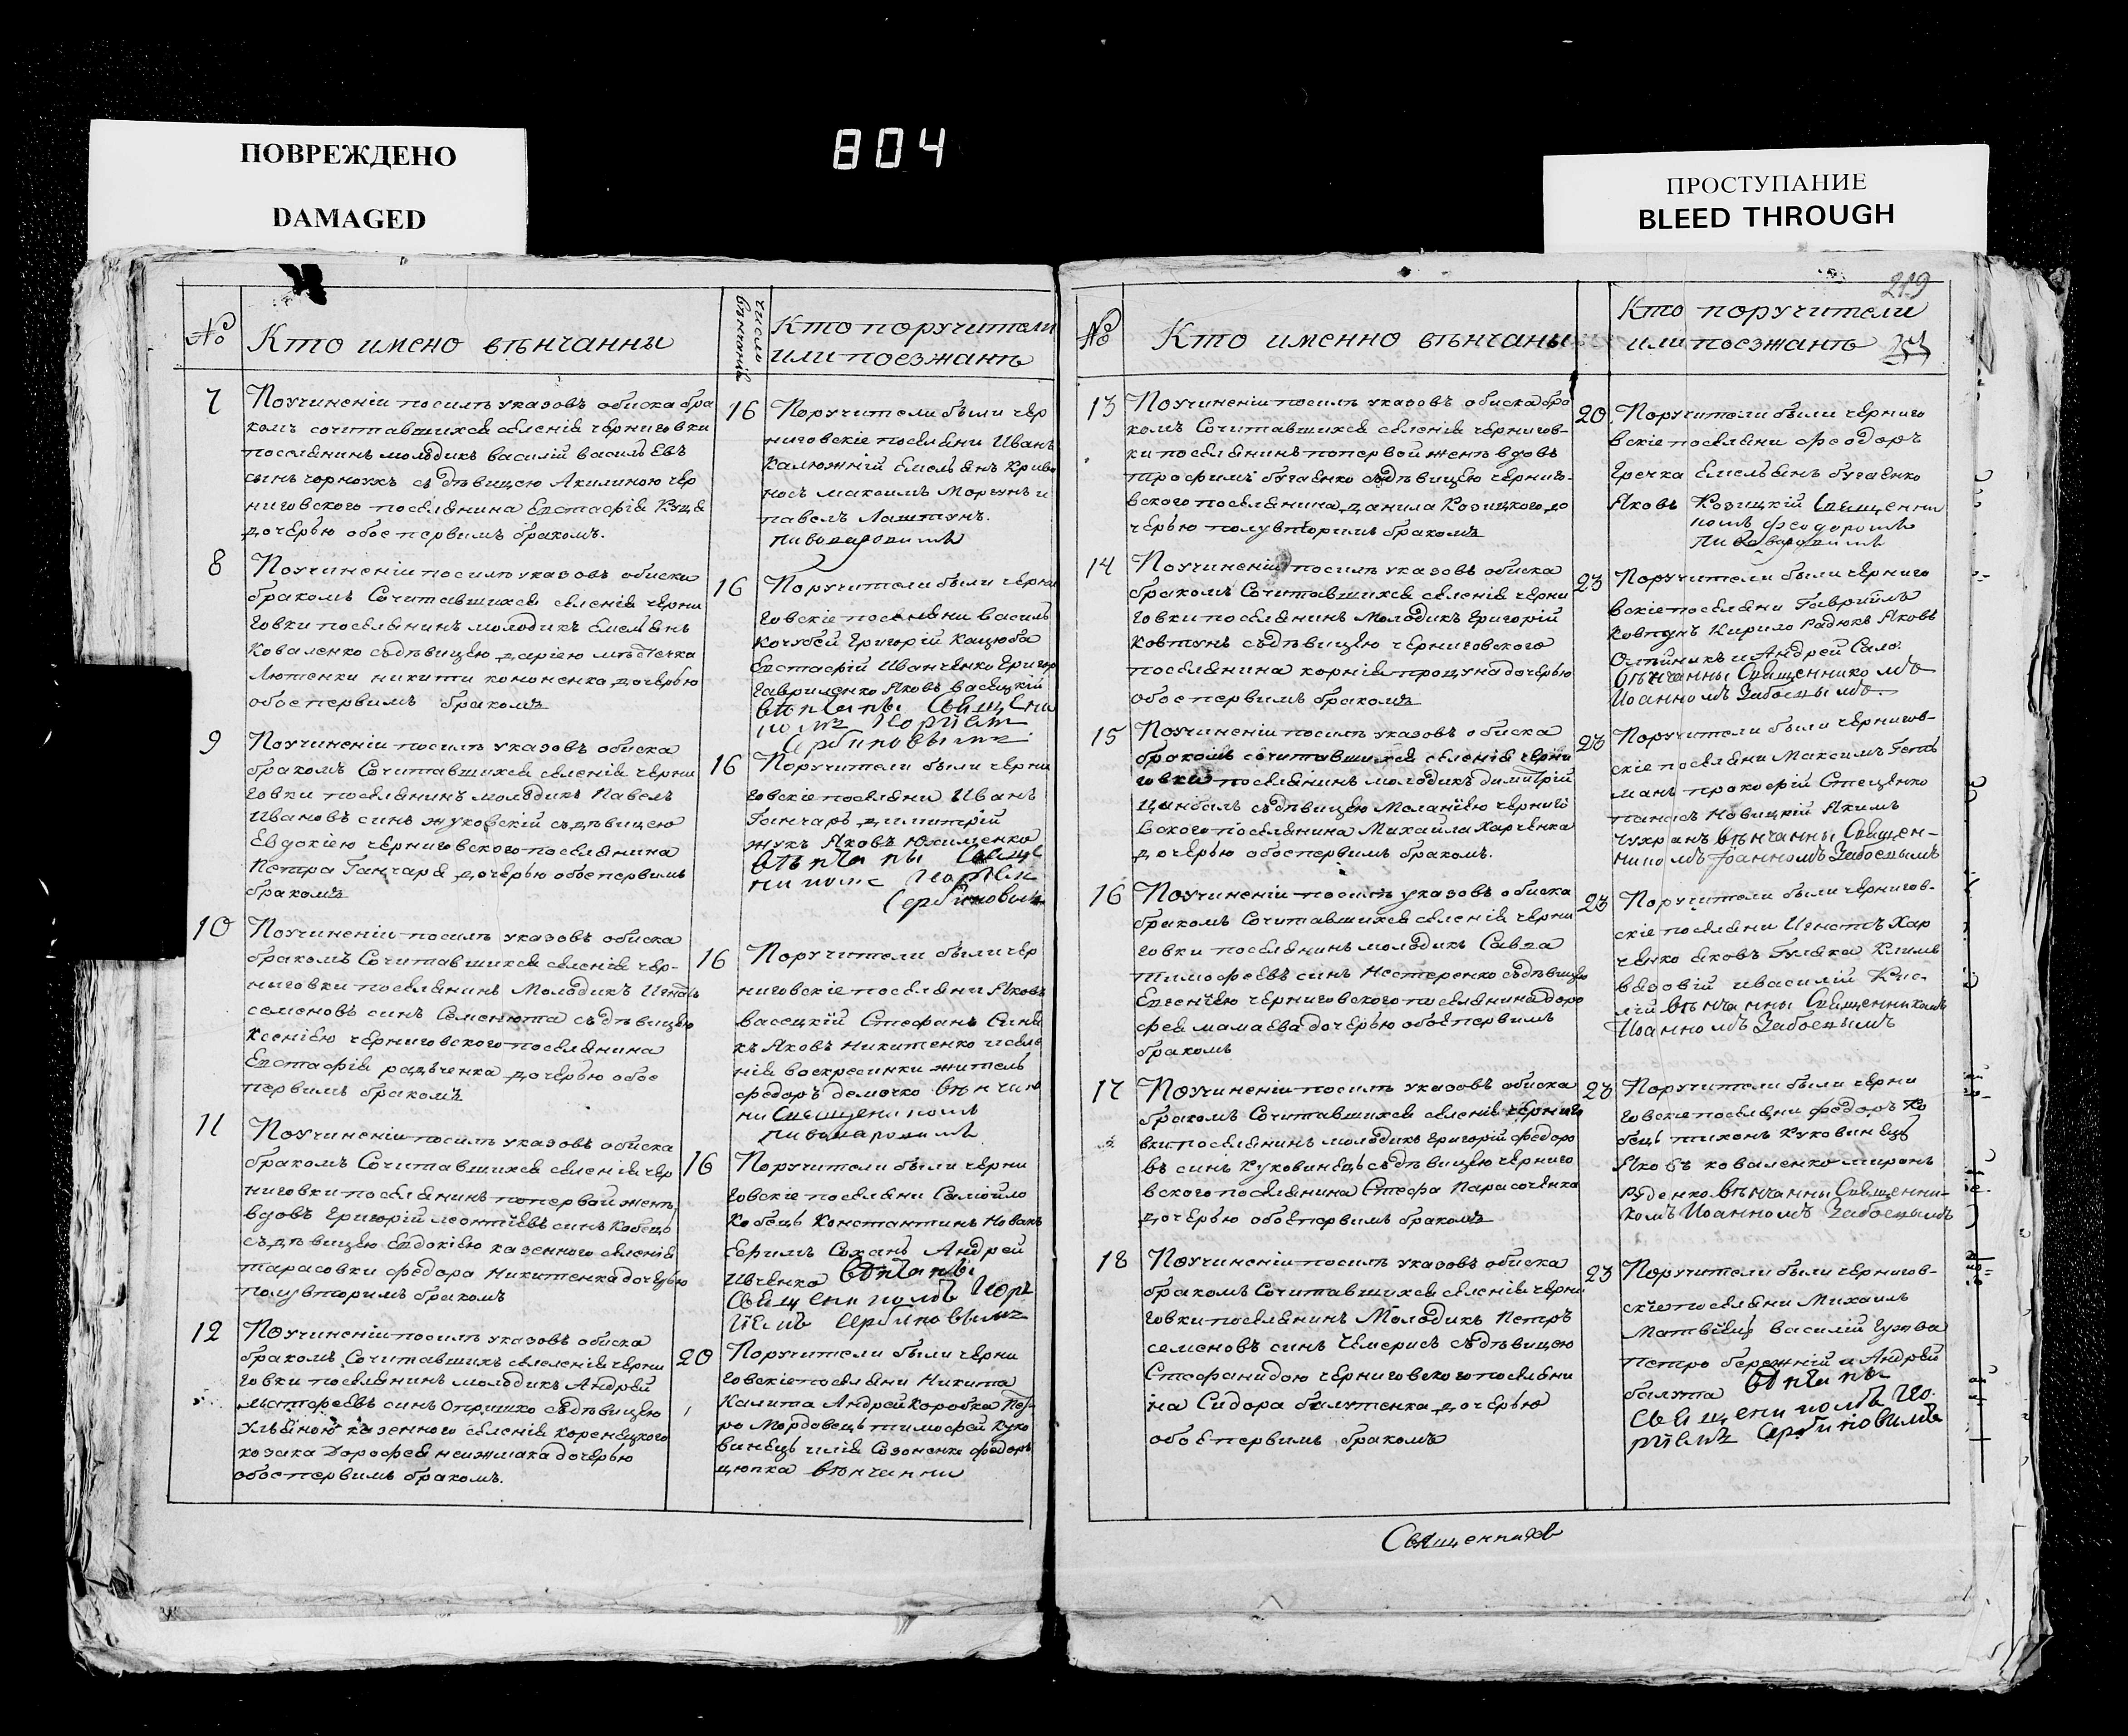 ПОВРЕЖДЕНО
DAMAGED
804
ПРОСТУПАНИЕ
BLEED THROUGH
№
Кто имено вѣнчанны
число
Кто поручители
или поезжанѣ
7
Поучиненіи посилѣ указовъ обиска бра
комъ сочитавшихся селенія черниговки
поселянинъ молодикъ василій васильевъ
сынъ чорноухъ съ дѣвицею Акилиною чер
ниговского поселянина Евстафія Куця
дочерью обое первимъ бракомъ.
16
Поручители были чер
ниговскіе поселяни Иванъ
Калюжній Емельянъ Криво
носъ максимъ Моргунъ и
павелъ Лаштунъ.
пивоваровимъ
8
Поучиненіи посилѣ указовъ обиски
бракомъ Сочитавшихся селенія черни
говки поселянинъ молодикъ Емельянъ
Коваленко съ дѣвицею дарією мѣстечка
Лютенки никити кононенка дочерью
обое первимъ бракомъ
16
Поручители были черни
говскіе поселяни василь
Кочубей Григорій Кацюба
Евстафій Иванченко Григор
Гавриленко Яковъ васецкій
вѣнчаны Священи
комъ Георгіемъ
Сербиновымъ
9
Поучиненіи посилѣ указовъ обиска
бракомъ Сочитавшихся селенія черни
говки поселянинъ молодикъ Павелъ
Ивановъ синъ жуковскій съ дѣвицею
Евдокією черниговского поселянина
Петра Ганчаря дочерью обое первимъ
бракомъ
16
Поручители были черни
говскіе поселяни Иванъ
Ганчаръ димитрій
жукъ Яковъ Юхименко
вѣнчаны Свяще
никомъ Георгіем
Сербиновымъ
10
Поучиненіи посилѣ указовъ обиска
бракомъ Сочитавшихся селенія чер-
ниговки поселянинъ Молодикъ Игнатъ
семеновъ синъ Семенюта съ дѣвицею
Ксенією черниговского поселянина
Евстафія радченка дочерью обое
первимъ бракомъ
16
Поручители были чер
ниговскіе поселяни Яковъ
васецкій Стефанъ Синя
къ Яковъ Никитенко и селе
нія воскресинки житель
федоръ демочко вѣнчан
ни Священикомъ
пивоваровимъ
11
Поучиненіи посилѣ указовъ обиска
бракомъ Сочитавшихся селенія чер
ниговки поселянинъ по первой женѣ
вдовъ Григорій леонтіевъ синъ Кобець
съ дѣвицею Евдокією казенного селенія
тарасовки федора Никитенка дочерью
полувторимъ бракомъ
16
Поручители были черни
говскіе поселяни Самойло
Кобець Константинъ Новакъ
Ефимъ Сохань Андрей
Ивченко вѣнчаны
Священикомъ Геор
гіемъ Сербиновымъ
12
Поучиненіи посилѣ указовъ обиска
бракомъ Сочитавшихъ селенія черни
говки поселянинъ молодикъ Андрей
матфеевъ синъ Опришко съ дѣвицею
Ульяною казенного селенія Коренецкого
козака Дорофея неижмака дочерью
обое первимъ бракомъ.
20
Поручители были черни
говскіе поселяни Никита
Калита Андрей Коробка Пет
ро Мордовець тимофей Куко
винець илія Созоненко федоръ
цюпка вѣнчанни
219
№
Кто именно вѣнчаны
Кто поручители
или поезжанѣ
13
Поучиненіи посилѣ указовъ обиска бра
комъ Сочитавшихся селенія чернигов-
ки поселянинъ по первой женѣ вдовъ
трофимъ бугаенко съ дѣвицею черниго-
вского поселянина данила Козицкого до
черью полувторимъ бракомъ
20
Поручители были черниго
вскіе поселяни феодоръ
Гречка Емельянъ бугаенко
Яковъ Козицкій Священни
комъ феодоромъ
Пивоваровимъ
14
Поучиненіи посилѣ указовъ обиска
бракомъ Сочитавшихся селенія черни
говки поселянинъ Молодикъ Григорій
Ковтунъ съ дѣвицею черниговского
поселянина корнія продуна дочерью
обое первимъ бракомъ
23
Поручители были черниго
вскіе поселяни Гавриилъ
Ковтунъ Кирило Радюкъ Яковъ
Олѣйникъ и Андрей Сало.
вѣнчанны Священникомъ
Иоанномъ Забоецымъ
15
Поучиненіи посилѣ указовъ обиска
бракомъ сочитавшихся селенія черни
говки поселянинъ молодикъ димитрій
Цинбалъ съ дѣвицею Меланією черниго
вского поселянина Михайла Харченка
дочерью обое первимъ бракомъ.
23
Поручители были чернигов-
скіе поселяни Максимъ Геть
манъ прокофій Стеценко
панасъ Новицкій Якимъ
Чухранъ вѣнчанны Священ-
никомъ Иоанномъ Забоецымъ
16
Поучиненіи посилѣ указовъ обиска
бракомъ Сочитавшихся селенія черни
говки поселянинъ молодикъ Савва
тимофеевъ синъ Нестеренко съ дѣвицею
Евгенією черниговского поселянина доро
фея мамаева дочерью обое первимъ
бракомъ
23
Поручители были чернигов-
скіе поселяни Игнатъ Хар
ченко яковъ Гуляка Климъ
вдовій и василій Кис-
лій вѣнчанны Священникомъ
Иоанномъ Забоецымъ
17
Поучиненіи посилѣ указовъ обиска
бракомъ Сочитавшихся селенія черниго
вки поселянинъ молодикъ Григорій федоро
въ синъ Куковинець съ дѣвицею черниго
вского поселянина Стефа Парасоченка
дочерью обое первимъ бракомъ
23
Поручители были черни
говскіе поселяни федоръ Ко
бець тихонъ Куковинець
Яковъ коваленко миронъ
Руденко вѣнчанны Священни-
комъ Иоанномъ Забоецымъ
18
Поучиненіи посилѣ указовъ обиска
бракомъ Сочитавшихся селенія черни
говки поселянинъ Молодикъ Петръ
семеновъ синъ Чемерисъ съ дѣвицею
Стефанидою черниговского поселяни
на Сидора балутенка дочерью
обое первимъ бракомъ
23
Поручители были чернигов-
скіе поселяни Михаилъ
Матвіець василій Гужва
петро бережній и Андрей
балута вѣнчаны
Священикомъ Гео
ргіемъ Сербиновимъ
Священникъ